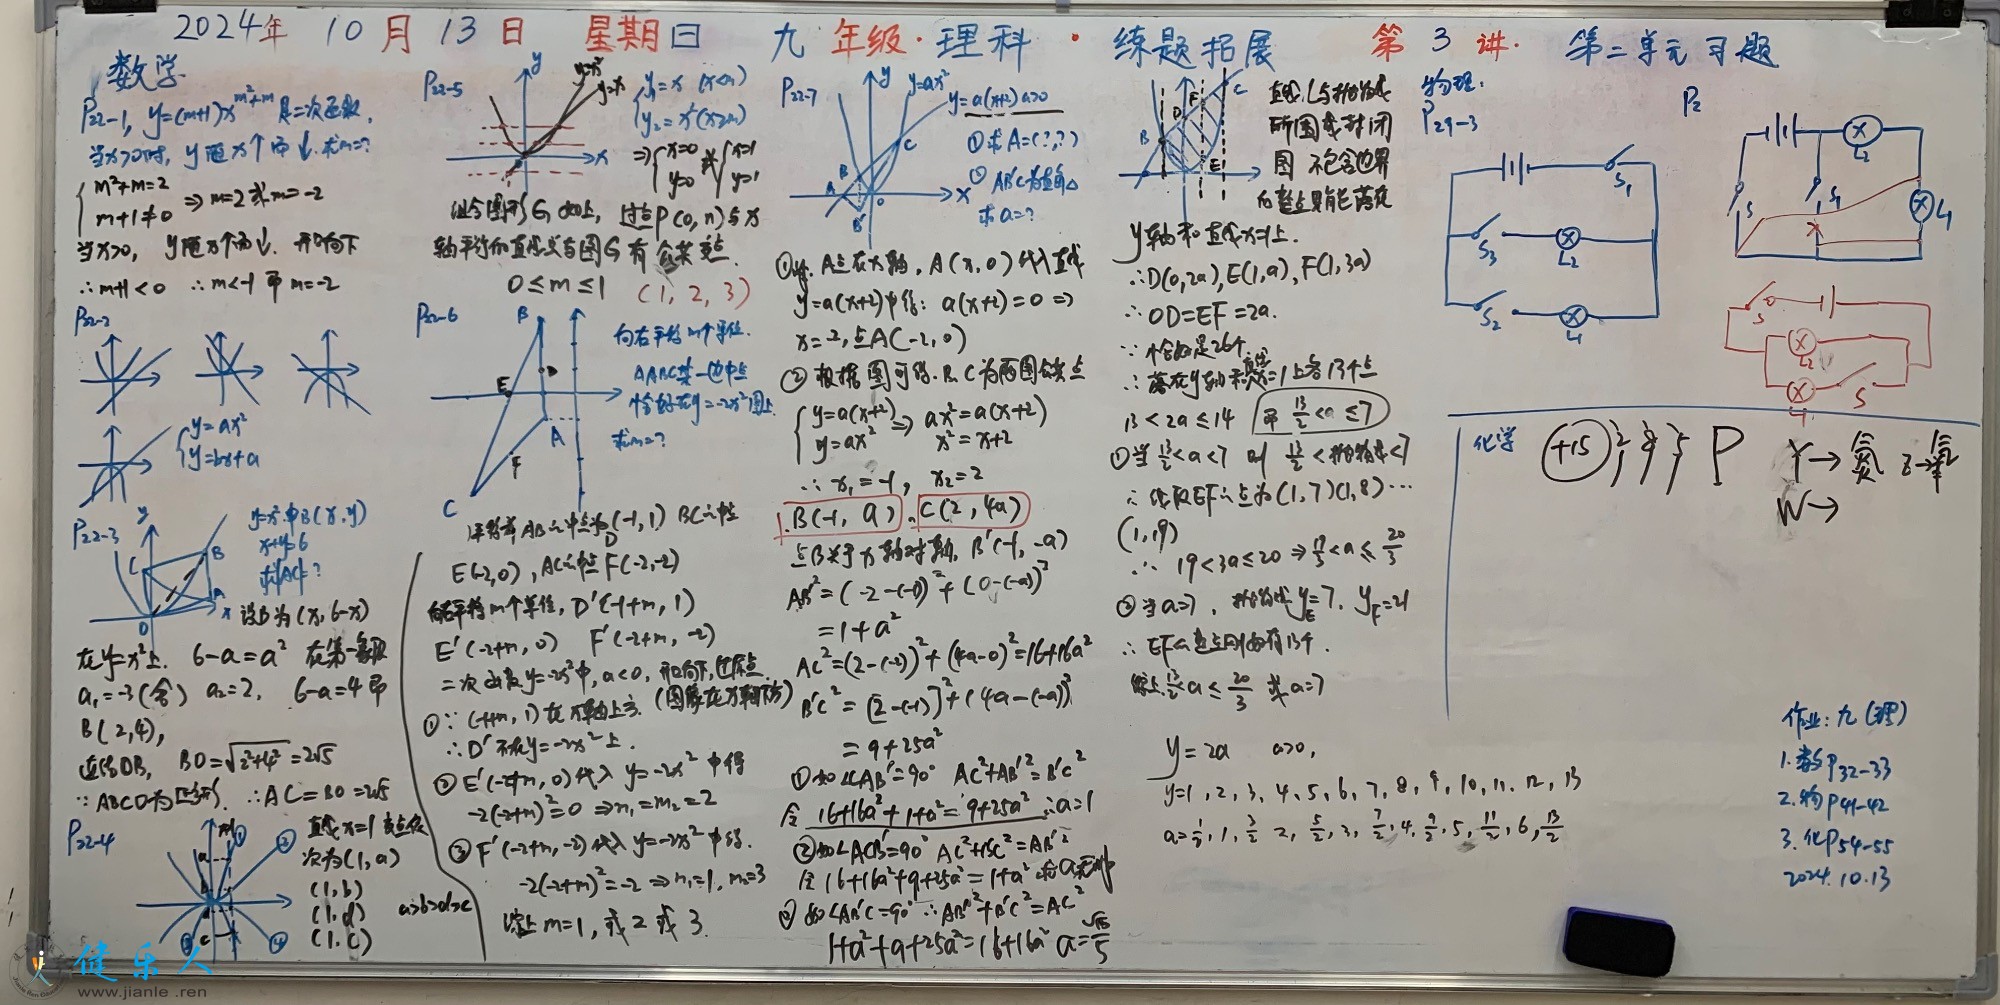 2024年 10月 13日 星期日 九年级·理科·练题拓展 第3讲. 第二单元习题
数学
P22-1, y=(m+1)x^{m²+m} 是二次函数,
当x>0时, y随x个而↓.求m=?
m²+m=2
m+1≠0 ⇒ m=2或m=-2
当x>0, y随x个而↓. 开口向下
∴m+1<0 ∴m<-1 即m=-2
P22-2
y=ax²
y=bx+a
P22-3
y=x²中B(x,y)
x+y=6
求AC=?
设B为(x,6-x)
在y=x²上. 6-a=a² 在第一象限
a₁=-3(舍) a₂=2, 6-a=4 即
B(2,4),
连结OB, BO=√2²+4²=2√5
∴AC=BO=2√5
P22-4
直线x=1
次为(1,a)
(1,b)
(1,d)
(1,c)
a>b>d>c
P22-5
y=x²
y=x
y₁=x (x<m)
y₂=x²(x≥m)
⇒ x=0 y=0 或 x=1 y=1
组合图形G如上, 过点P(0,n)与x
轴平行的直线与图G有公共交点.
0≤m≤1 (1,2,3)
P22-6
向右平移m个单位.
△ABC某一边中点
恰好在y=-2x²图上
求m=?
AB之中点为(-1,1) BC之中点
E(-2,0), AC之中点F(-2,-2)
向右平移m个单位, D'(-1+m,1)
E'(-2+m,0) F'(-2+m,-2)
二次函数y=-2x²中,a<0, 开口向下,过原点.
(图象在x轴下方)
①∵(-1+m,1)在x轴上方.
∴D'不在y=-2x²上.
②E'(-2+m,0)代入y=-2x²中得
-2(-2+m)²=0 ⇒m₁=m₂=2
③F'(-2+m,-2)代入y=-2x²中得.
-2(-2+m)²=-2 ⇒m₁=1,m₂=3
综上m=1,或2或3.
P22-7
y=ax²
y=a(x+2) a>0
①求A=(?,?)
②AB'C为直角△
求a=?
A点在x轴, A(x,0)代入直线
y=a(x+2)中得: a(x+2)=0 ⇒
x=-2,点A(-2,0)
②根据图可得.B、C为两图公共点
y=a(x+2)
y=ax² ⇒ ax²=a(x+2)
x²=x+2
∴x₁=-1, x₂=2
B(-1,a), C(2,4a)
点B关于x轴对称, B'(-1,-a)
AB'²=(-2-(-1))²+(0-(-a))²
=1+a²
AC²=(2-(-2))²+(4a-0)²=16+16a²
B'C²=[2-(-1)]²+(4a-(-a))²
=9+25a²
①如∠CAB'=90° AC²+AB'²=B'C²
令16+16a²+1+a²=9+25a² ∴a=1
②如∠ACB'=90° AC²+B'C²=AB'²
令16+16a²+9+25a²=1+a²
③如∠AB'C=90° ∴AB'²+B'C²=AC²
1+a²+9+25a²=16+16a² a=√15/5
直线L与抛物线
所围成封闭
图 不包含边界
的整点只能落在
y轴和直线x=1上.
∴D(0,2a),E(1,a),F(1,3a)
∴OD=EF=2a.
∵恰好是26个.
∴落在y轴和直线x=1上各13个点
13<2a≤14 即 13/2<a≤7
①当13/2<a<7 时 13/2<抛物线<7
∴线段EF之点为(1,7)(1,8)…
(1,19)
∴19<3a≤20 ⇒19/3<a≤20/3
②当a=7, 抛物线y_E=7, y_F=21
∴EF之点刚好有13个.
综上13/2<a≤20/3 或a=7
y=2a a>0,
y=1,2,3,4,5,6,7,8,9,10,11,12,13
a=1/2,1,3/2 2,5/2,3,7/2,4,9/2,5,11/2,6,13/2
物理.
P29-3
S₁
S₃ L₂
S₂ L₁
P2
L₂
S S₁ L₁
S
L₂
L₁ S
化学 (+15) 2 8 5 P Y→氮 Z→氧
W→
作业:九(理)
1.数P32-33
2.物P41-42
3.化P54-55
2024.10.13
健乐人
www.jianle.ren